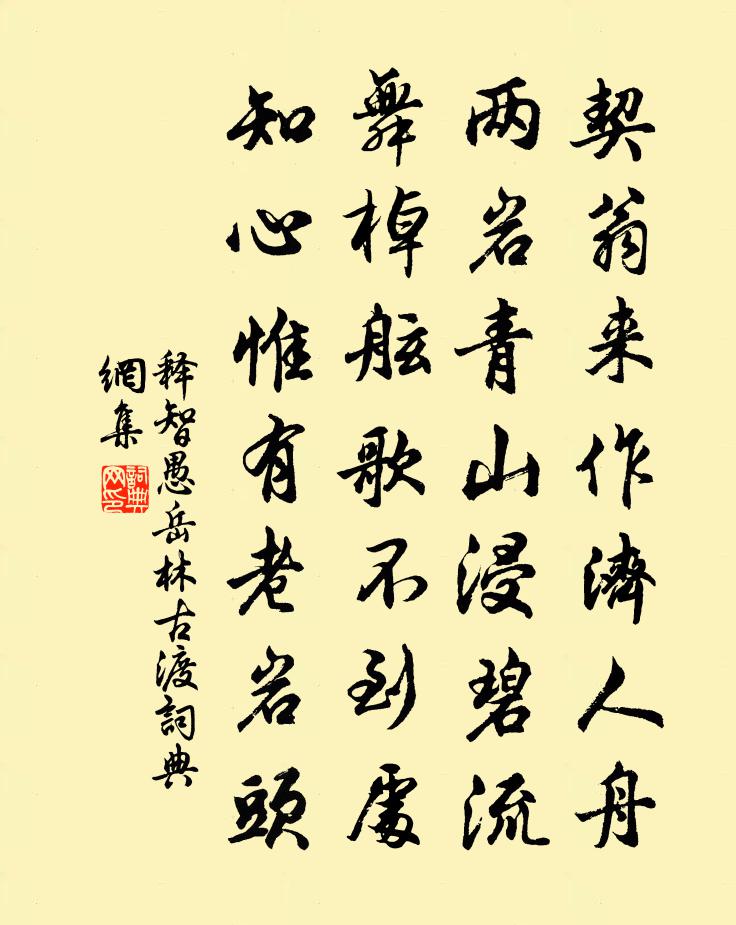 契翁来作濟人舟
两岩青山浸碧流
舞棹舷歌不到處
知心惟有老岩頭
释智愚岳林古渡詞典
網集
詞典
网印